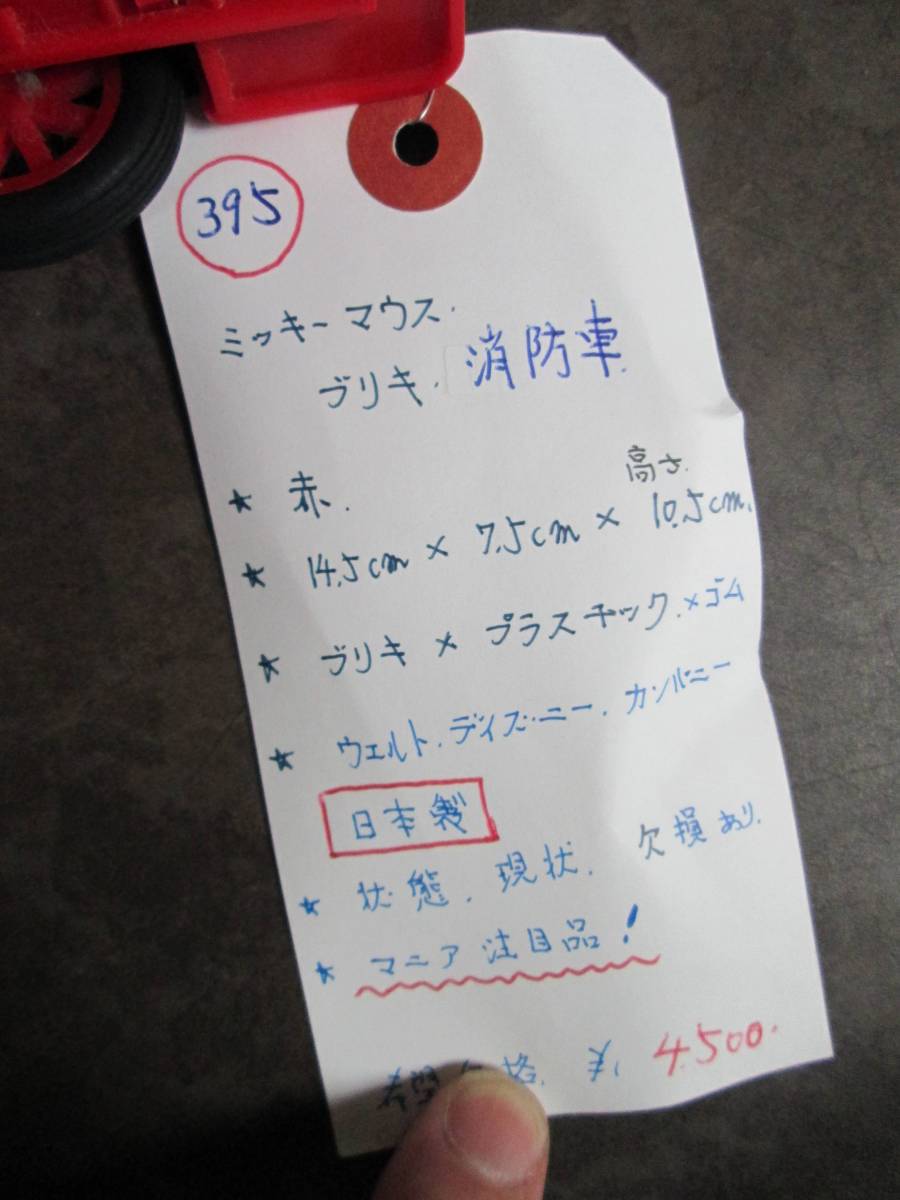 395
ミッキーマウス.
ブリキ. 消防車.
★ 赤.
高さ.
★ 14.5cm × 7.5cm × 10.5cm.
★ ブリキ × プラスチック. ×ゴム
★ ウェルト.ディズニー.カンパニー
日本製
★ 状態. 現状. 欠損あり.
★ マニア注目品!
格. ¥. 4.500.